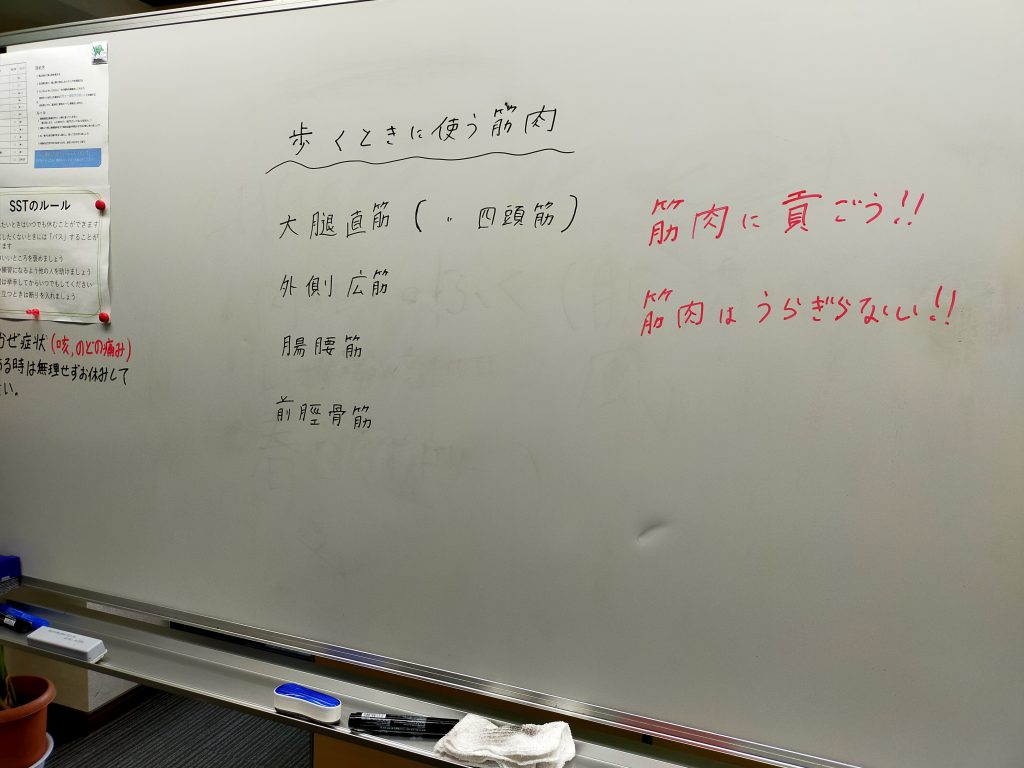 歩くときに使う筋肉
大腿直筋(〃 四頭筋)
外側広筋
腸腰筋
前脛骨筋
筋肉に貢ごう!!
筋肉はうらぎらない!!
SSTのルール
たいときはいつでも休むことができます
したくないときには「パス」することが
ます
いいところを褒めましょう
練習になるよう他の人を助けましょう
は挙手してからいつでもしてください
立つときは断りを入れましょう
かぜ症状(咳,のどの痛み)
ある時は無理せずお休みして
い。